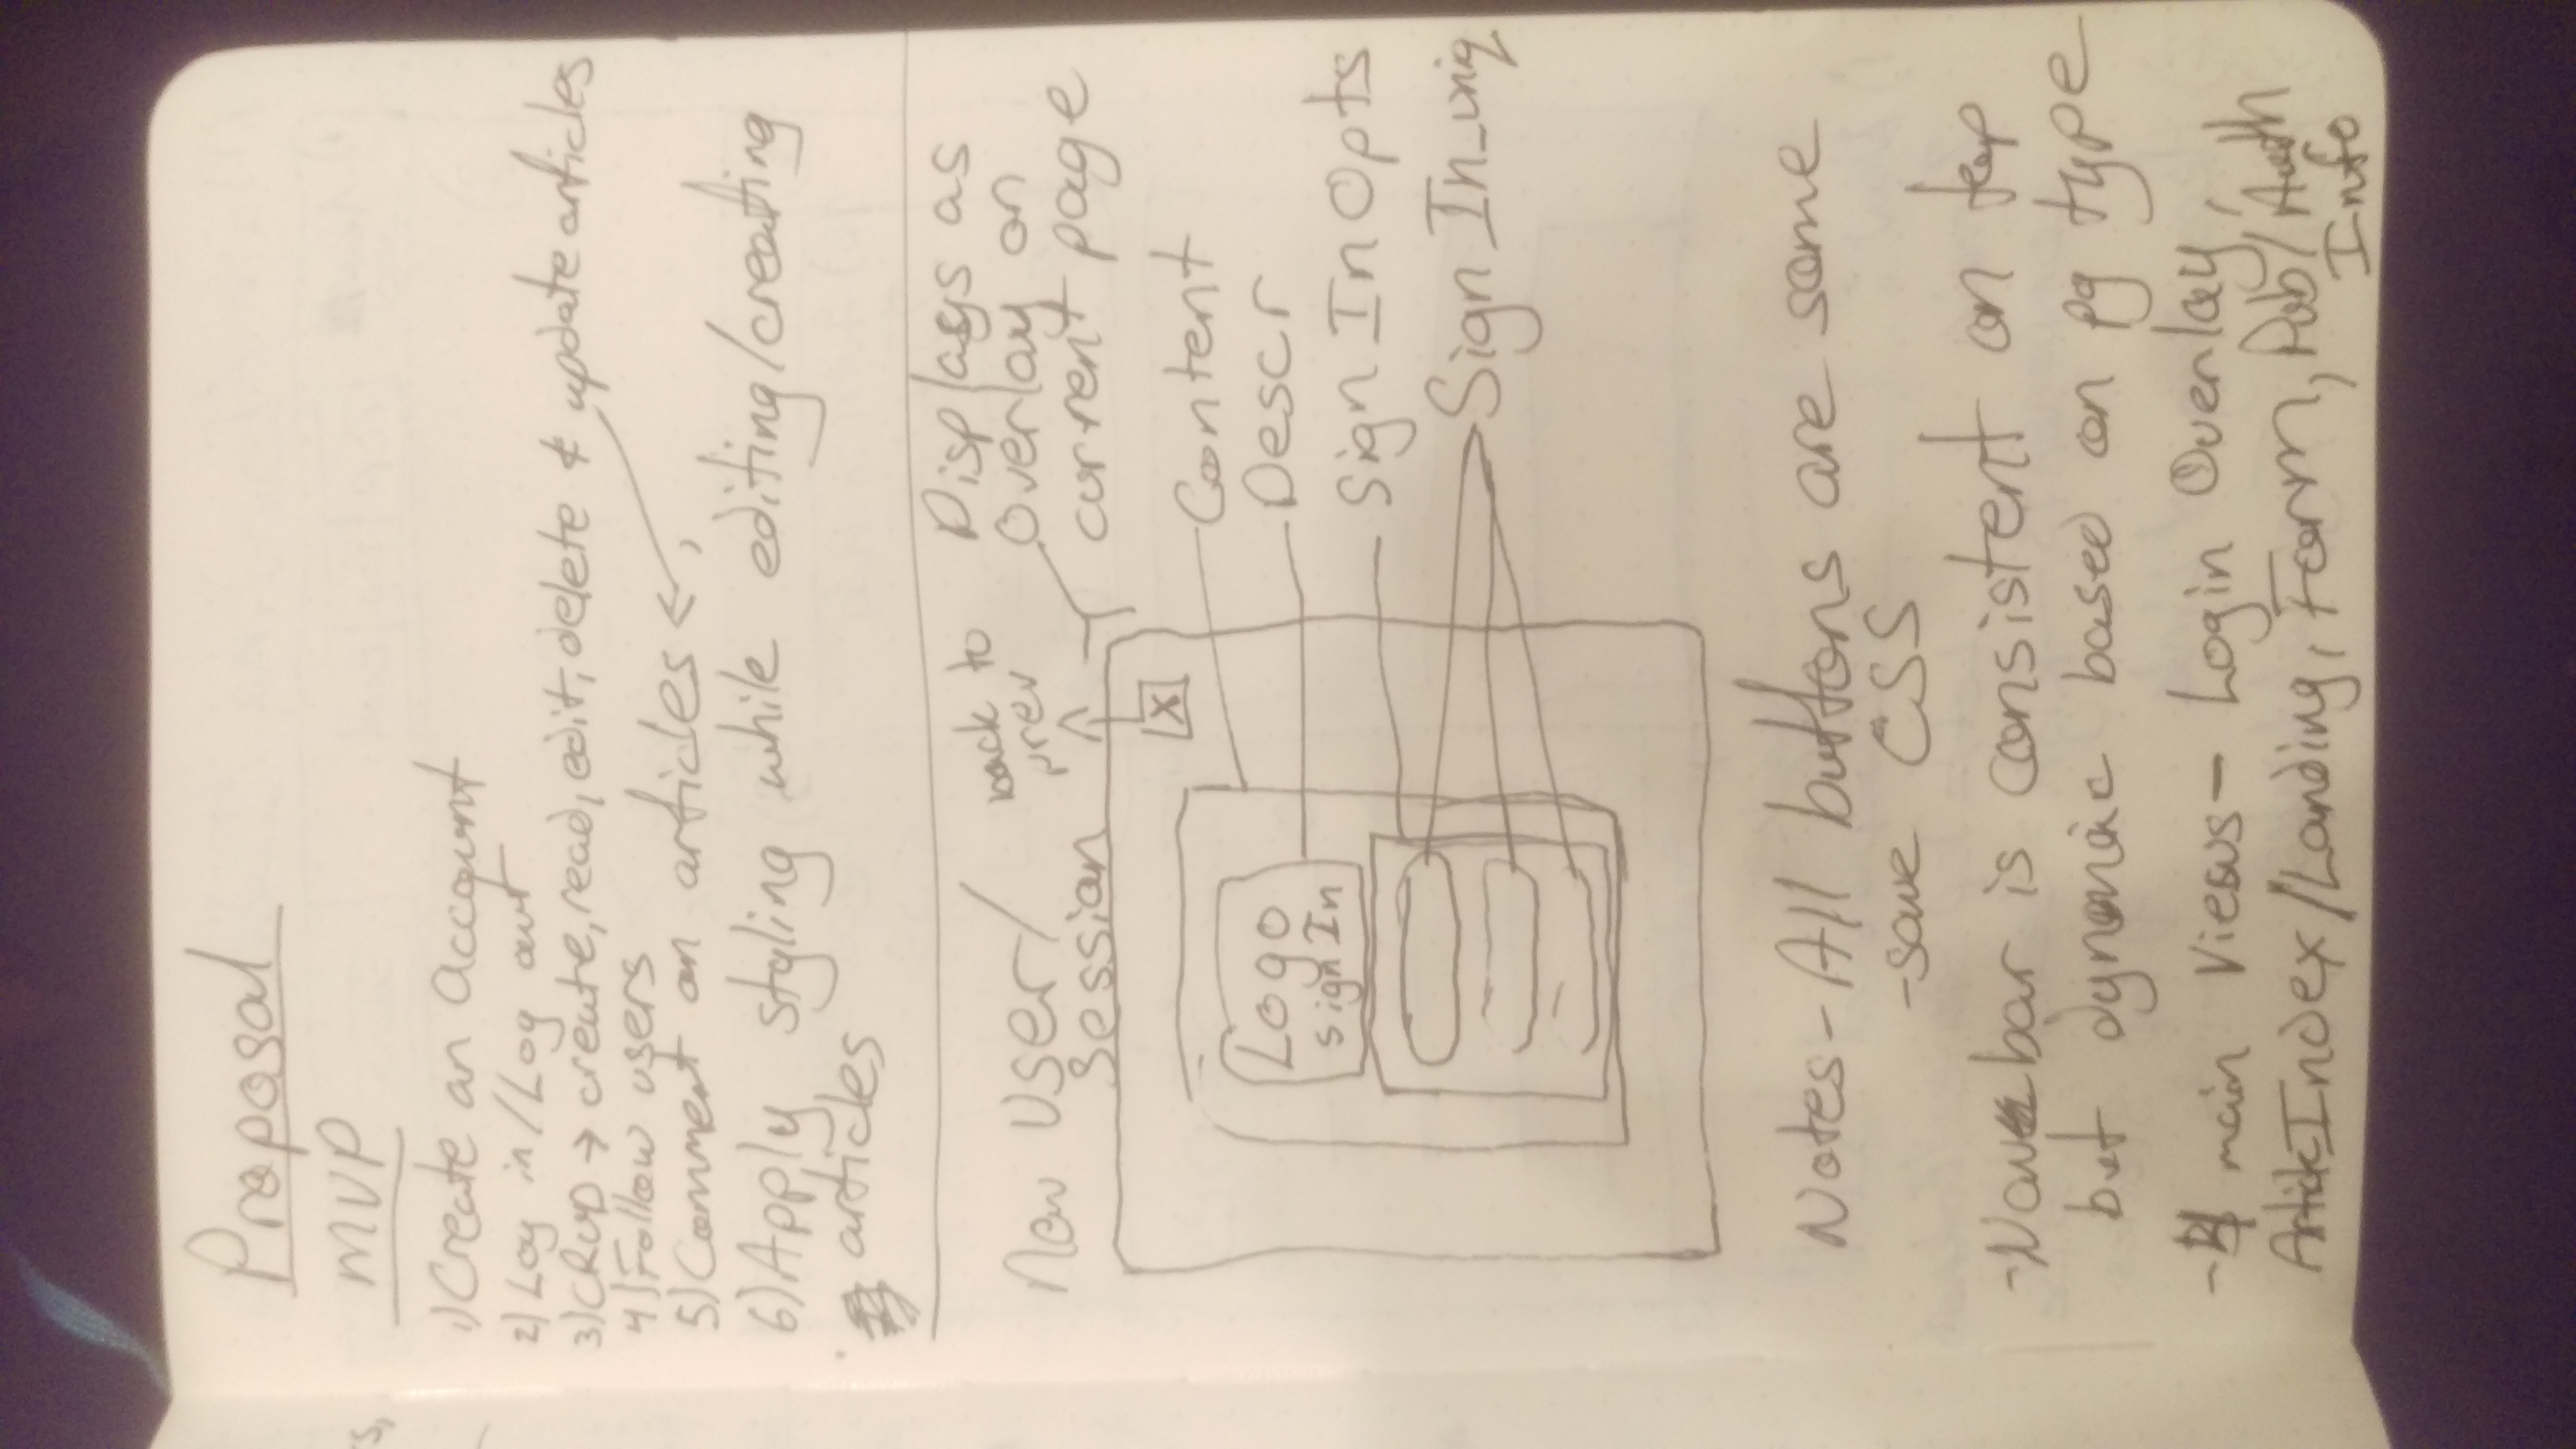 Proposal
MVP
1) Create an Account
2) Log in/Log out
3) CRUD → create, read, edit, delete & update articles
4) Follow users
5) Comment on articles ←,
6) Apply styling while editing/creating
articles
New User/
Session
back to
prev
Displays as
overlay on
current page
X
Content
Descr
Sign In Opts
Sign In_uniq
Logo
sign In
Notes - All buttons are some
- save CSS
- Nav bar is consistent on top
but dynamic based on pg type
- 4 main views - Login Overlay,
Article Index/Landing, Form, Pub/Auth
Info